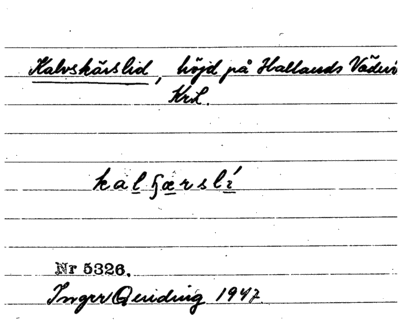 Kalvskärslid, höjd på Hallands Väderö
KrL.
kalʃærslí
Nr 5326.
Inger Quiding 1947.